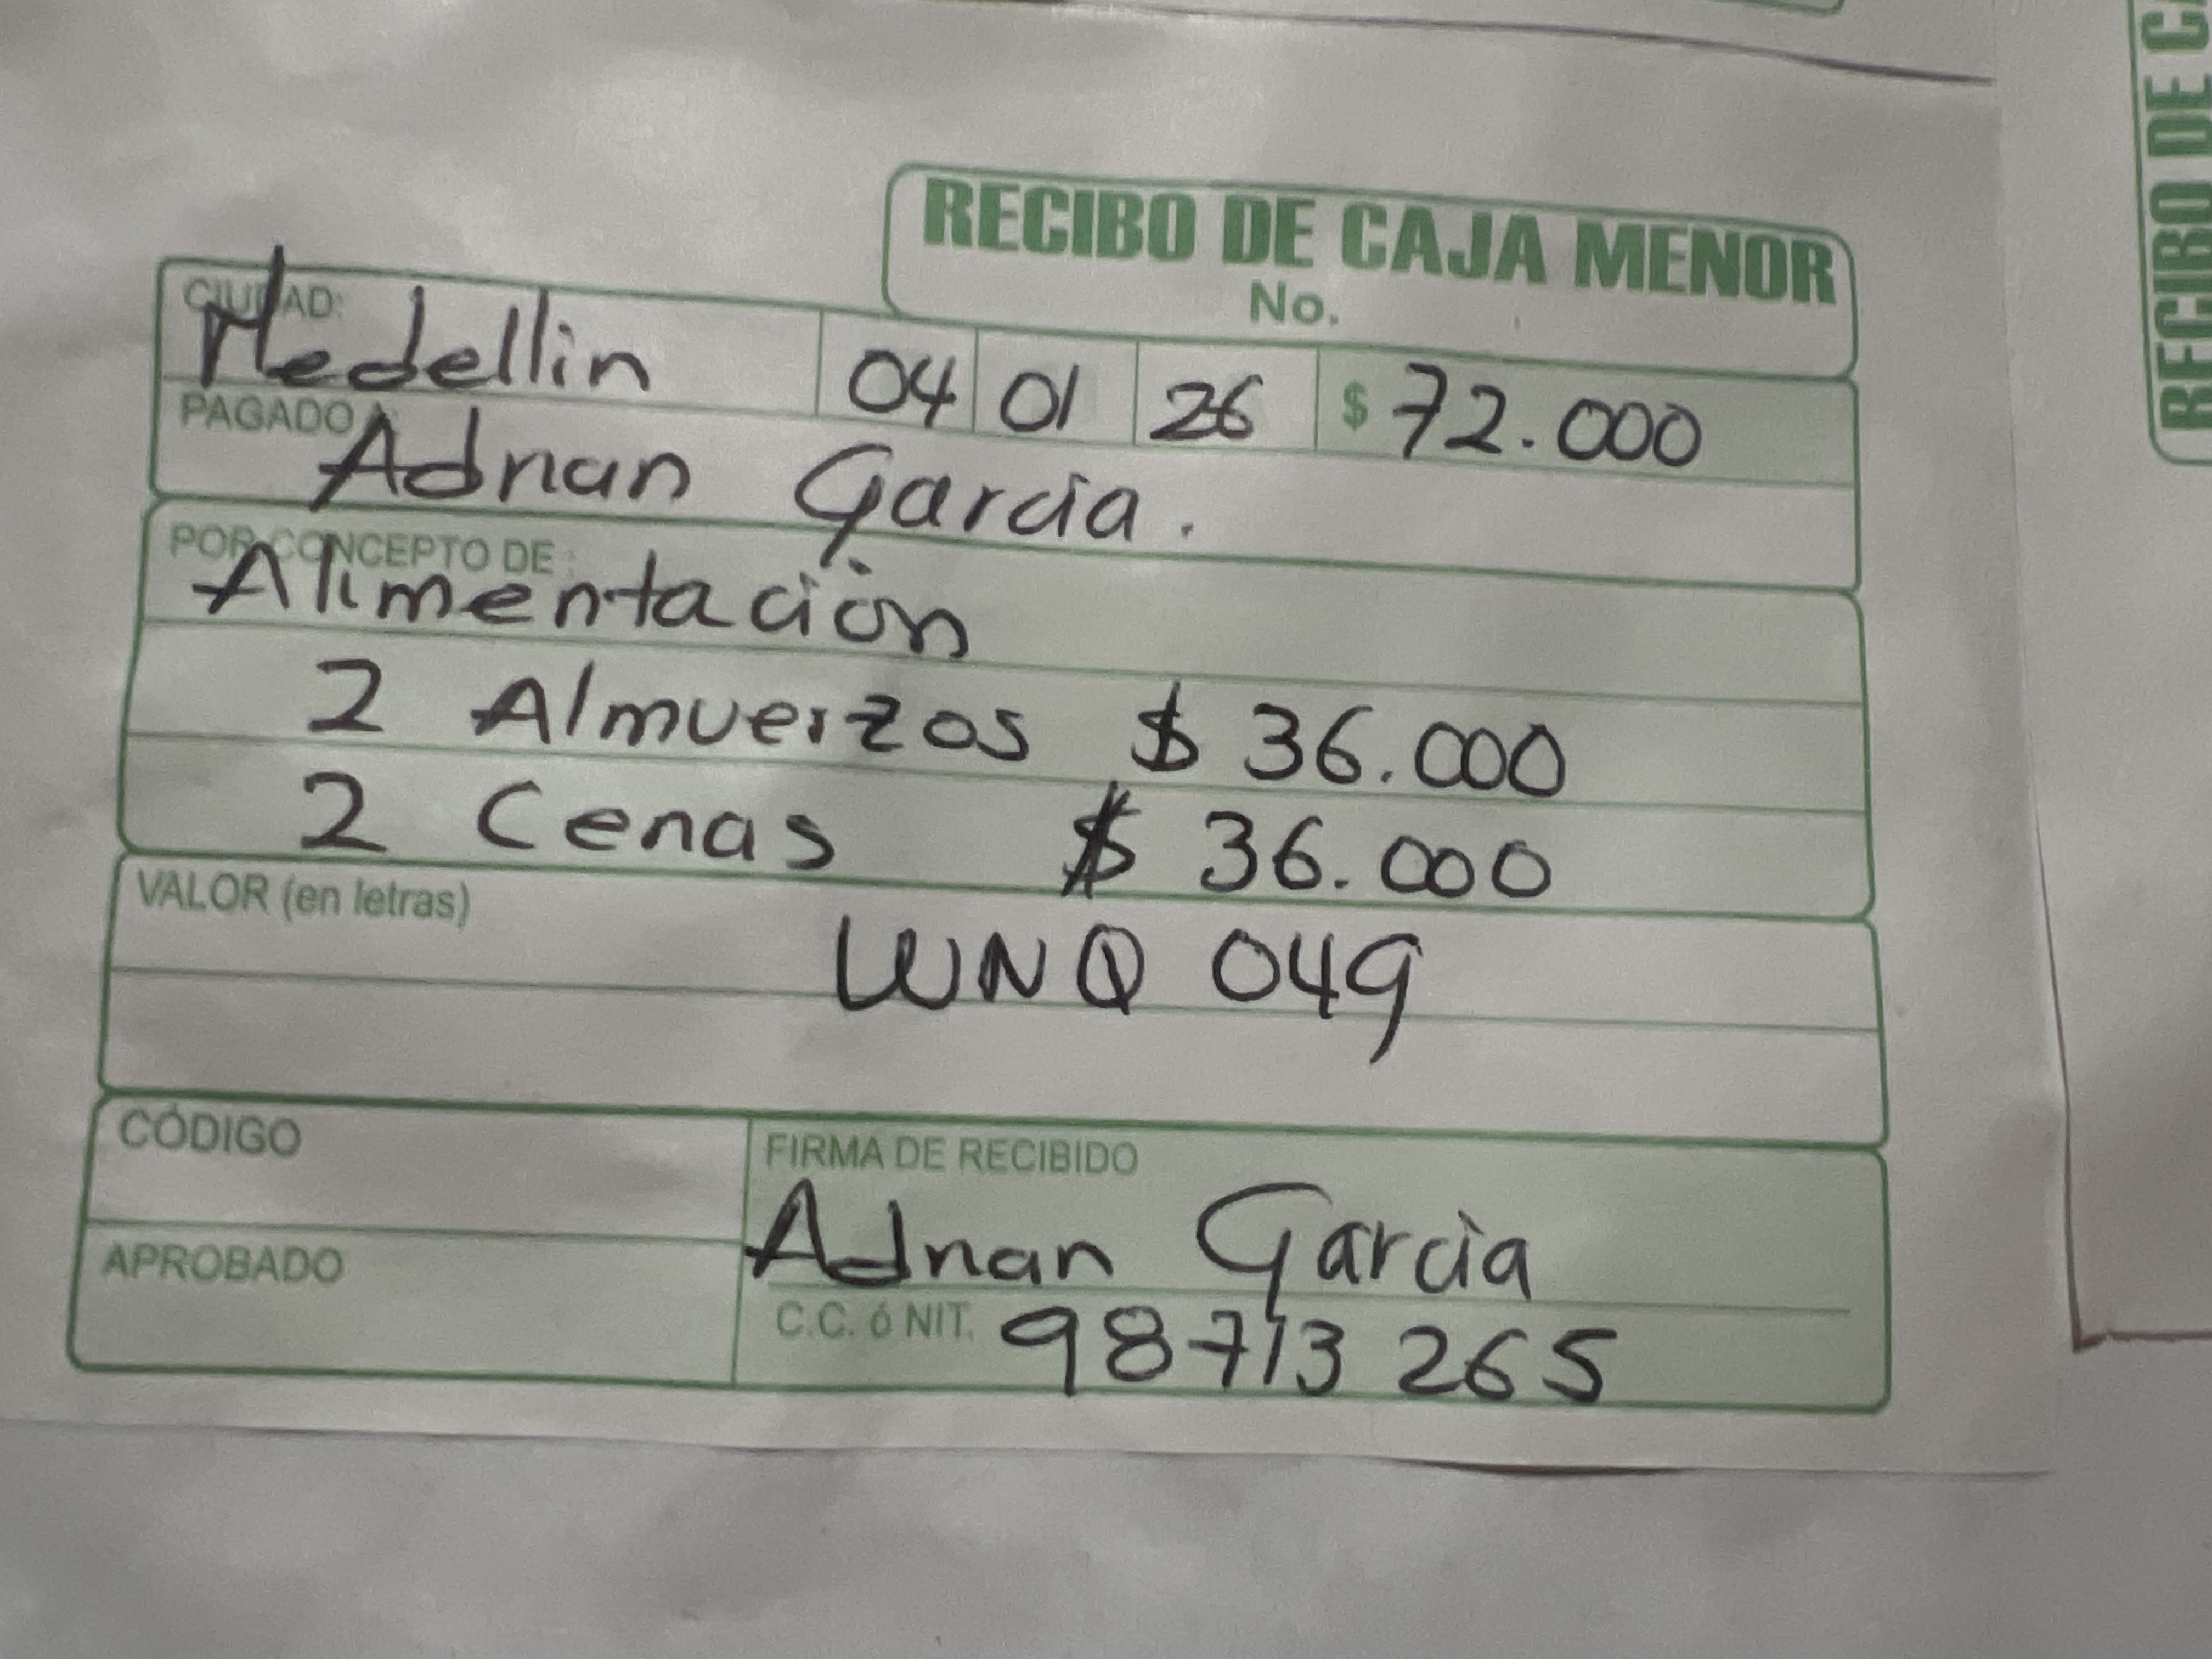 RECIBO DE CAJA MENOR
No.
CIUDAD: Medellin 04 01 26 $ 72.000
PAGADO A: Adrian Garcia.
POR CONCEPTO DE:
Alimentación
2 Almuerzos $ 36.000
2 Cenas $ 36.000
VALOR (en letras)
WNQ 049
CÓDIGO
FIRMA DE RECIBIDO
Adrian Garcia
APROBADO
C.C. ó NIT. 98713265
RECIBO DE CA